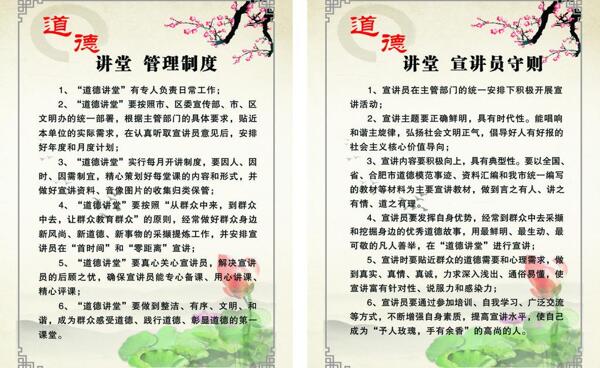 道德
讲堂 管理制度
1、“道德讲堂”有专人负责日常工作；
2、“道德讲堂”要按照市、区委宣传部、市、区
文明办的统一部署，根据主管部门的具体要求，贴近
本单位的实际需求，在认真听取宣讲员意见后，安排
好年度和月度计划；
3、“道德讲堂”实行每月开讲制度，要因人、因
时、因需制宜，精心策划好每堂课的内容和形式，并
做好宣讲资料、音像图片的收集归类保管；
4、“道德讲堂”要按照“从群众中来，到群众
中去，让群众教育群众”的原则，经常做好群众身边
新风尚、新道德、新事物的采撷提炼工作，并安排宣
讲员在“首时间”和“零距离”宣讲；
5、“道德讲堂”要真心关心宣讲员，解决宣讲员
的后顾之忧，确保宣讲员能专心备课、用心讲课、
精心评课；
6、“道德讲堂”要做到整洁、有序、文明、和
谐，成为群众感受道德、践行道德、彰显道德的第一
课堂。
道德
讲堂 宣讲员守则
1、宣讲员在主管部门的统一安排下积极开展宣
讲活动；
2、宣讲主题要正确鲜明，具有时代性。能唱响
和谐主旋律，弘扬社会文明正气，倡导好人有好报的
社会主义核心价值导向；
3、宣讲内容要积极向上，具有典型性。要以全国、
省、合肥市道德模范事迹、资料汇编和我市统一编写
的教材等材料为主要宣讲教材，做到言之有人、讲之
有情、道之有理。
4、宣讲员要发挥自身优势，经常到群众中去采撷
和挖掘身边的优秀道德故事，用最鲜明、最生动、最
可敬的凡人善举，在“道德讲堂”进行宣讲；
5、宣讲时要贴近群众的道德需要和心理需求，做
到真实、真情、真诚，力求深入浅出、通俗易懂，使
宣讲富有针对性、说服力和感染力；
6、宣讲员要通过参加培训、自我学习、广泛交流
等方式，不断增强自身素质，提高宣讲水平，使自己
成为“予人玫瑰，手有余香”的高尚的人。